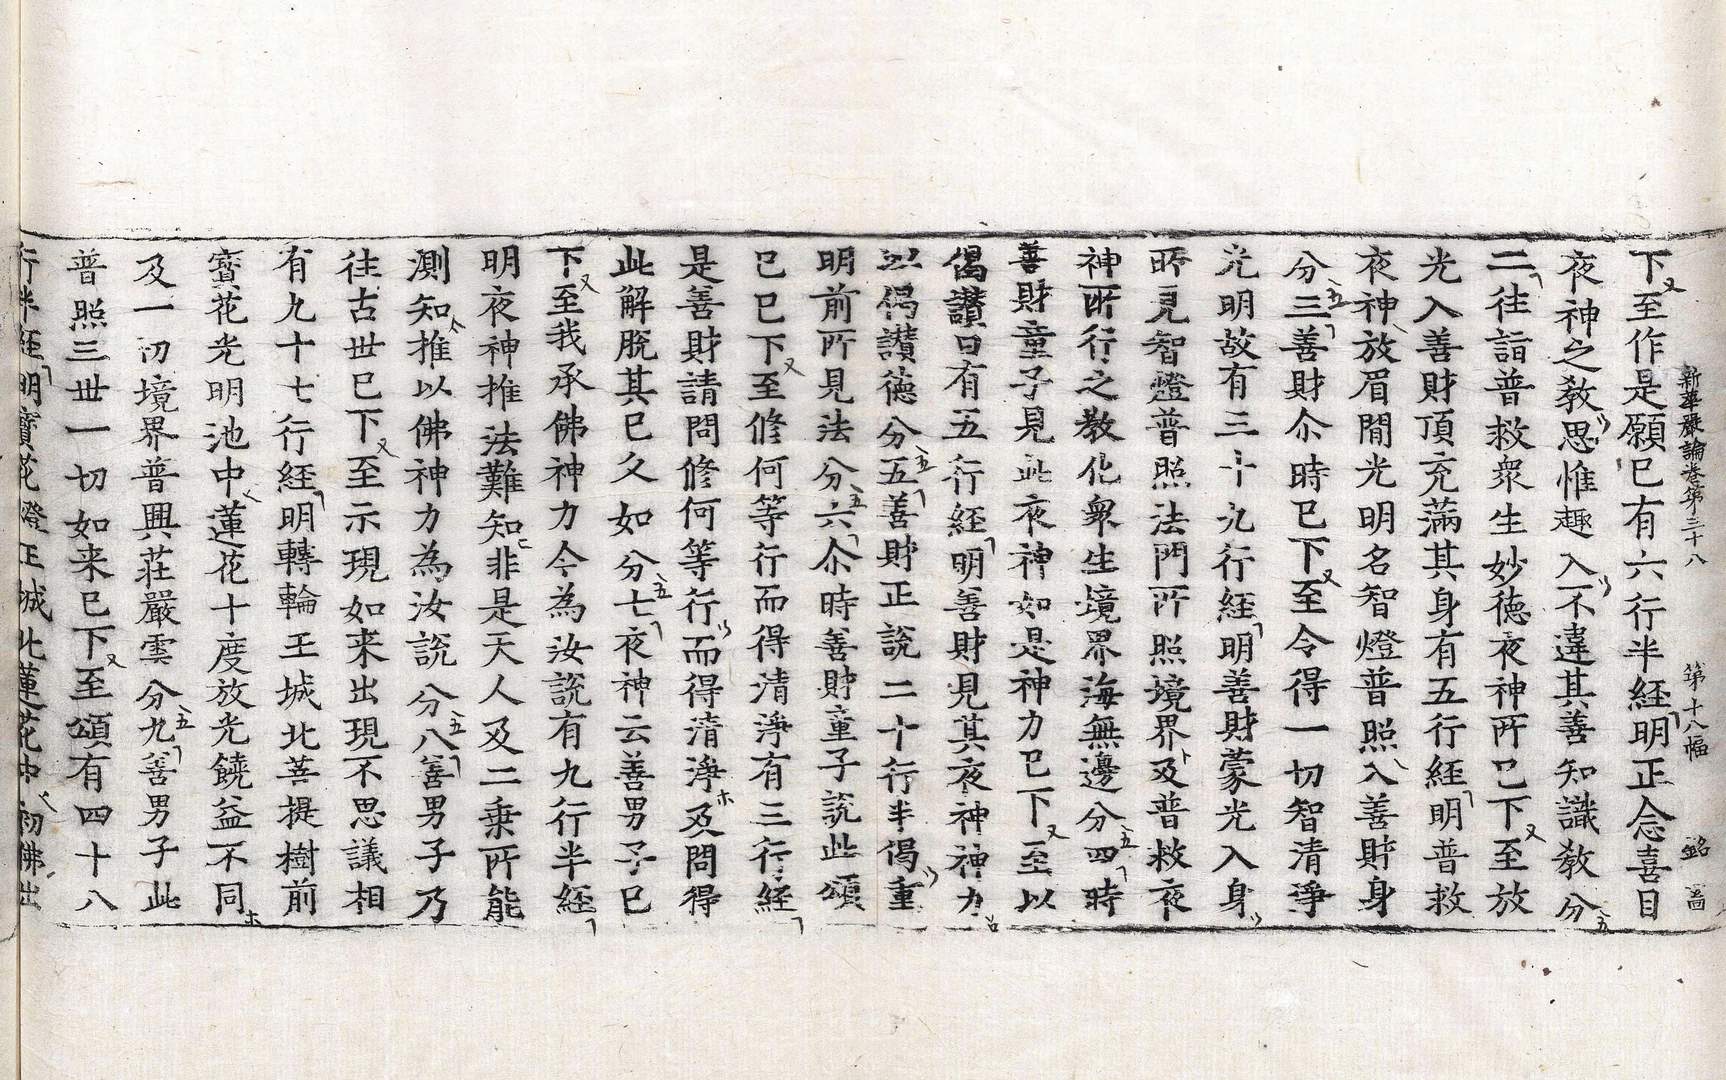 新華嚴論卷第三十八　第十八幅　銘
下至作是願已有六行半經明正念喜目
夜神之教思惟趣入不違其善知識教分
二往詣普救衆生妙德夜神所已下至放
光入善財頂充滿其身有五行經明普救
夜神放眉間光明名智燈普照入善財身
分三善財尒時已下至令得一切智清淨
光明故有三十九行經明善財蒙光入身
所見智燈普照法門所照境界及普救夜
神所行之教化衆生境界海無邊分四時
善財童子見此夜神如是神力已下至以
偈讃曰有五行經明善財見其夜神神力
以偈讃德分五善財正說二十行半偈重
明前所見法分六尒時善財童子說此頌
已已下至修何等行而得清淨有三行經
是善財請問修何等行而得清淨及問得
此解脫其已久如分七夜神云善男子已
下至我承佛神力今為汝說有九行半經
明夜神推法難知非是天人及二乘所能
測知推以佛神力為汝說分八善男子乃
往古世已下至示現如来出現不思議相
有九十七行經明轉輪王城北菩提樹前
寳花光明池中蓮花十度放光饒益不同
及一切境界普興莊嚴雲分九善男子此
普照三世一切如来已下至頌有四十八
行半經明寳花燈王城北蓮花中初佛出